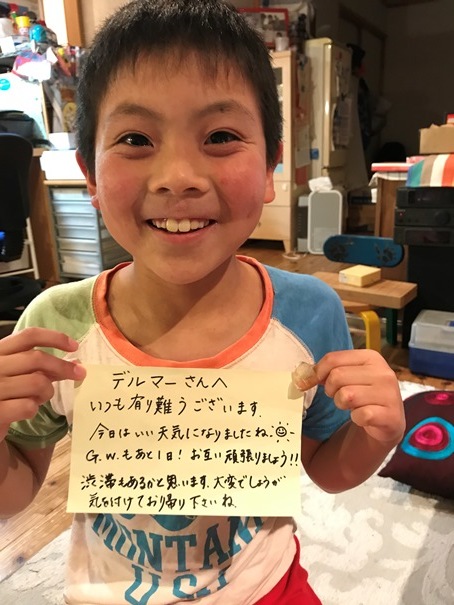 デルマーさんへ
いつも有り難うございます.
今日はいい天気になりましたね☺
G.W.もあと1日!お互い頑張りましょう!!
渋滞もあるかと思います.大変でしょうが
気を付けてお帰り下さいね.
MONTANA
U.S.A